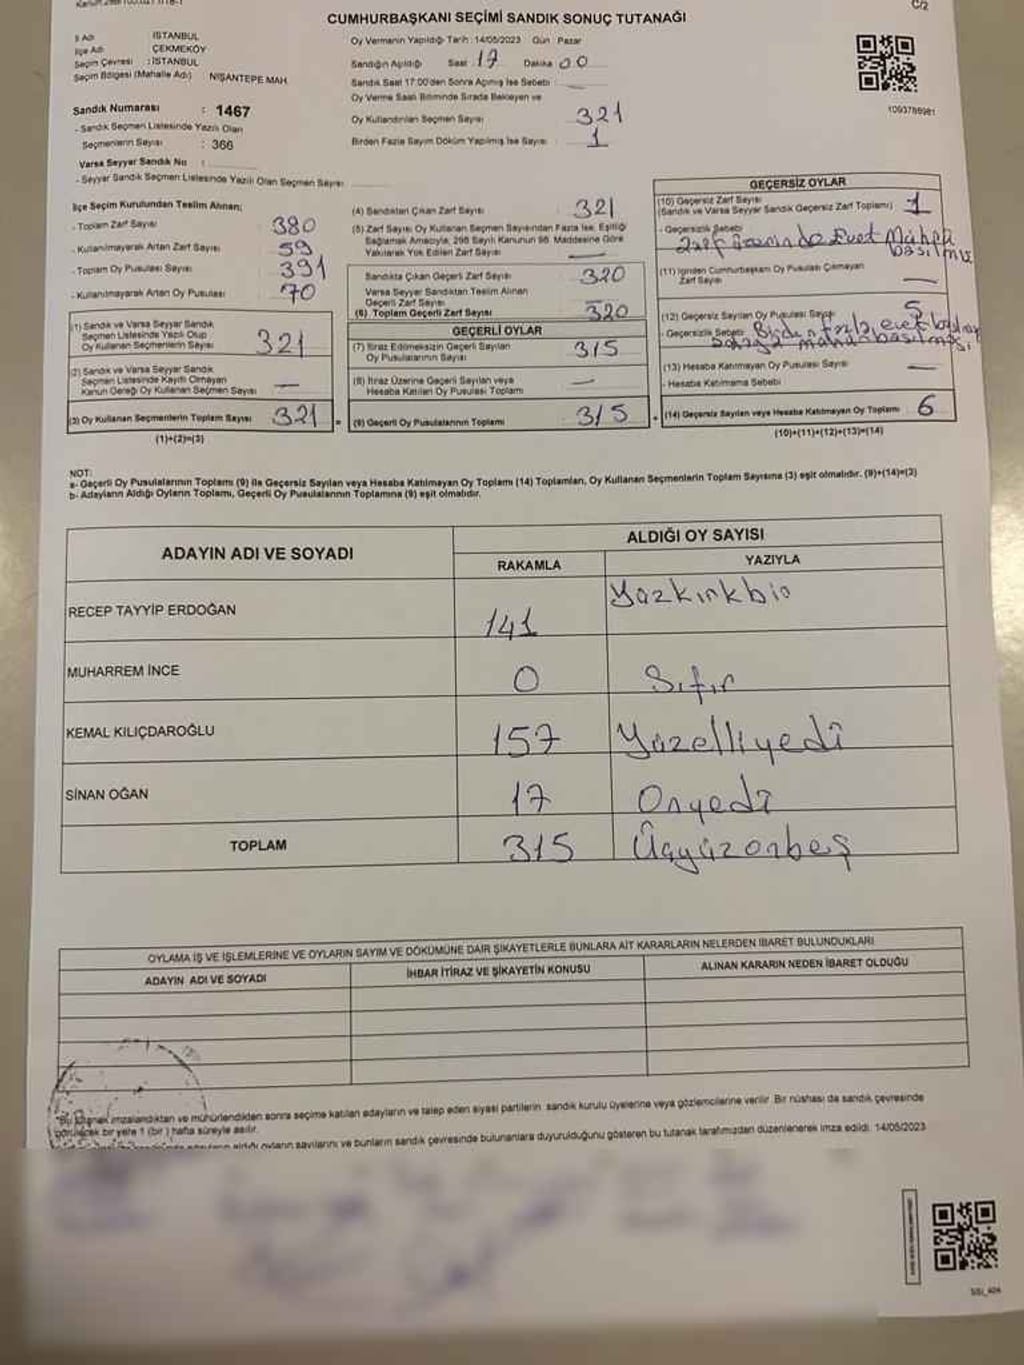 C/2
CUMHURBAŞKANI SEÇİMİ SANDIK SONUÇ TUTANAĞI
İl Adı İSTANBUL
İlçe Adı ÇEKMEKÖY
Seçim Çevresi : İSTANBUL
Seçim Bölgesi (Mahalle Adı) NİŞANTEPE MAH.
Sandık Numarası : 1467
- Sandık Seçmen Listesinde Yazılı Olan
Seçmenlerin Sayısı : 366
Varsa Seyyar Sandık No :
- Seyyar Sandık Seçmen Listesinde Yazılı Olan Seçmen Sayısı
Oy Vermenin Yapıldığı Tarih : 14/05/2023 Gün : Pazar
Sandığın Açıldığı Saat : 17 Dakika 00
Sandık Saat 17:00'den Sonra Açılmış İse Sebebi :
Oy Verme Saati Bitiminde Sırada Bekleyen ve
Oy Kullandırılan Seçmen Sayısı 321
Birden Fazla Sayım Döküm Yapılmış İse Sayısı : 1
1093788981
İlçe Seçim Kurulundan Teslim Alınan;
- Toplam Zarf Sayısı 380
- Kullanılmayarak Artan Zarf Sayısı 59
- Toplam Oy Pusulası Sayısı 391
- Kullanılmayarak Artan Oy Pusulası 70
(1) Sandık ve Varsa Seyyar Sandık
Seçmen Listesinde Yazılı Olup
Oy Kullanan Seçmenlerin Sayısı 321
(2) Sandık ve Varsa Seyyar Sandık
Seçmen Listesinde Kayıtlı Olmayan
Kanun Gereği Oy Kullanan Seçmen Sayısı —
(3) Oy Kullanan Seçmenlerin Toplam Sayısı 321 =
(1)+(2)=(3)
(4) Sandıktan Çıkan Zarf Sayısı 321
(5) Zarf Sayısı Oy Kullanan Seçmen Sayısından Fazla İse, Eşitliği
Sağlamak Amacıyla, 298 Sayılı Kanunun 98. Maddesine Göre
Yakılarak Yok Edilen Zarf Sayısı —
Sandıkta Çıkan Geçerli Zarf Sayısı 320
Varsa Seyyar Sandıktan Teslim Alınan
Geçerli Zarf Sayısı
(6) Toplam Geçerli Zarf Sayısı 320
GEÇERLİ OYLAR
(7) İtiraz Edilmeksizin Geçerli Sayılan
Oy Pusulalarının Sayısı 315
(8) İtiraz Üzerine Geçerli Sayılan veya
Hesaba Katılan Oy Pusulası Toplamı —
(9) Geçerli Oy Pusulalarının Toplamı 315 +
GEÇERSİZ OYLAR
(10) Geçersiz Zarf Sayısı
(Sandık ve Varsa Seyyar Sandık Geçersiz Zarf Toplamı) 1
- Geçersizlik Sebebi
Evet
(11) İçinden Cumhurbaşkanı Oy Pusulası Çıkmayan
Zarf Sayısı —
(12) Geçersiz Sayılan Oy Pusulası Sayısı 5
- Geçersizlik Sebebi
(13) Hesaba Katılmayan Oy Pusulası Sayısı —
- Hesaba Katılmama Sebebi
(14) Geçersiz Sayılan veya Hesaba Katılmayan Oy Toplamı 6
(10)+(11)+(12)+(13)=(14)
NOT:
a- Geçerli Oy Pusulalarının Toplamı (9) ile Geçersiz Sayılan veya Hesaba Katılmayan Oy Toplamı (14) Toplamları, Oy Kullanan Seçmenlerin Toplam Sayısına (3) eşit olmalıdır. (9)+(14)=(3)
b- Adayların Aldığı Oyların Toplamı, Geçerli Oy Pusulalarının Toplamına (9) eşit olmalıdır.
ADAYIN ADI VE SOYADI ALDIĞI OY SAYISI
RAKAMLA YAZIYLA
RECEP TAYYİP ERDOĞAN 141 Yüzkırkbir
MUHARREM İNCE 0 Sıfır
KEMAL KILIÇDAROĞLU 157 Yüzelliyedi
SİNAN OĞAN 17 Onyedi
TOPLAM 315 Üçyüzonbeş
OYLAMA İŞ VE İŞLEMLERİNE VE OYLARIN SAYIM VE DÖKÜMÜNE DAİR ŞİKAYETLERLE BUNLARA AİT KARARLARIN NELERDEN İBARET BULUNDUKLARI
ADAYIN ADI VE SOYADI İHBAR İTİRAZ VE ŞİKAYETİN KONUSU ALINAN KARARIN NEDEN İBARET OLDUĞU
imzalandıktan ve mühürlendikten sonra seçime katılan adayların ve talep eden siyasi partilerin sandık kurulu üyelerine veya gözlemcilerine verilir. Bir nüshası da sandık çevresinde
görülecek bir yere 1 (bir) hafta süreyle asılır.
aldığı oyların sayılarını ve bunların sandık çevresinde bulunanlara duyurulduğunu gösteren bu tutanak tarafımızdan düzenlenerek imza edildi. 14/05/2023